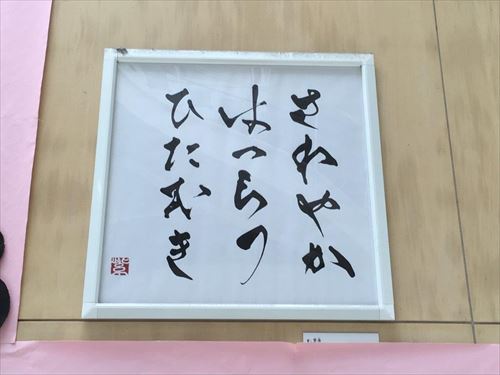 さわやか
はつらつ
ひたむき